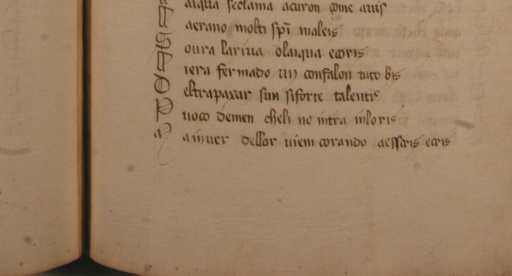 alqua seclama acuron come auis
T aerano molti spi maleis
S oura larriua olaiqua ecoris
T iera fermado un confalon tuto bis
O eltrapaxar sun siforte talentis
P uoco demen cheli no intra inloris
A ainuer dellor uiem corando aessoris ecris